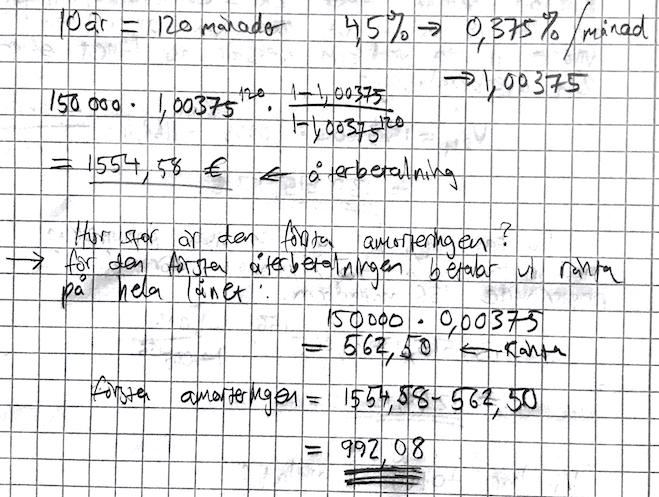 10 år = 120 månader 4,5% → 0,375% / månad
→ 1,00375
150 000 · 1,00375^120 · (1-1,00375)/(1-1,00375^120)
= 1554,58 € ← återbetalning
Hur stor är den första amorteringen?
→ för den första återbetalningen betalar vi ränta
på hela lånet:
150000 · 0,00375
= 562,50 ← Ränta
första amorteringen = 1554,58 - 562,50
= 992,08